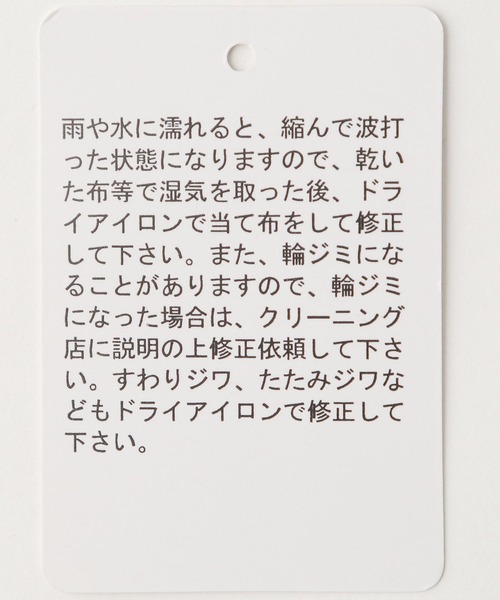 雨や水に濡れると、縮んで波打
った状態になりますので、乾い
た布等で湿気を取った後、ドラ
イアイロンで当て布をして修正
して下さい。また、輪ジミにな
ることがありますので、輪ジミ
になった場合は、クリーニング
店に説明の上修正依頼して下さ
い。すわりジワ、たたみジワな
どもドライアイロンで修正して
下さい。